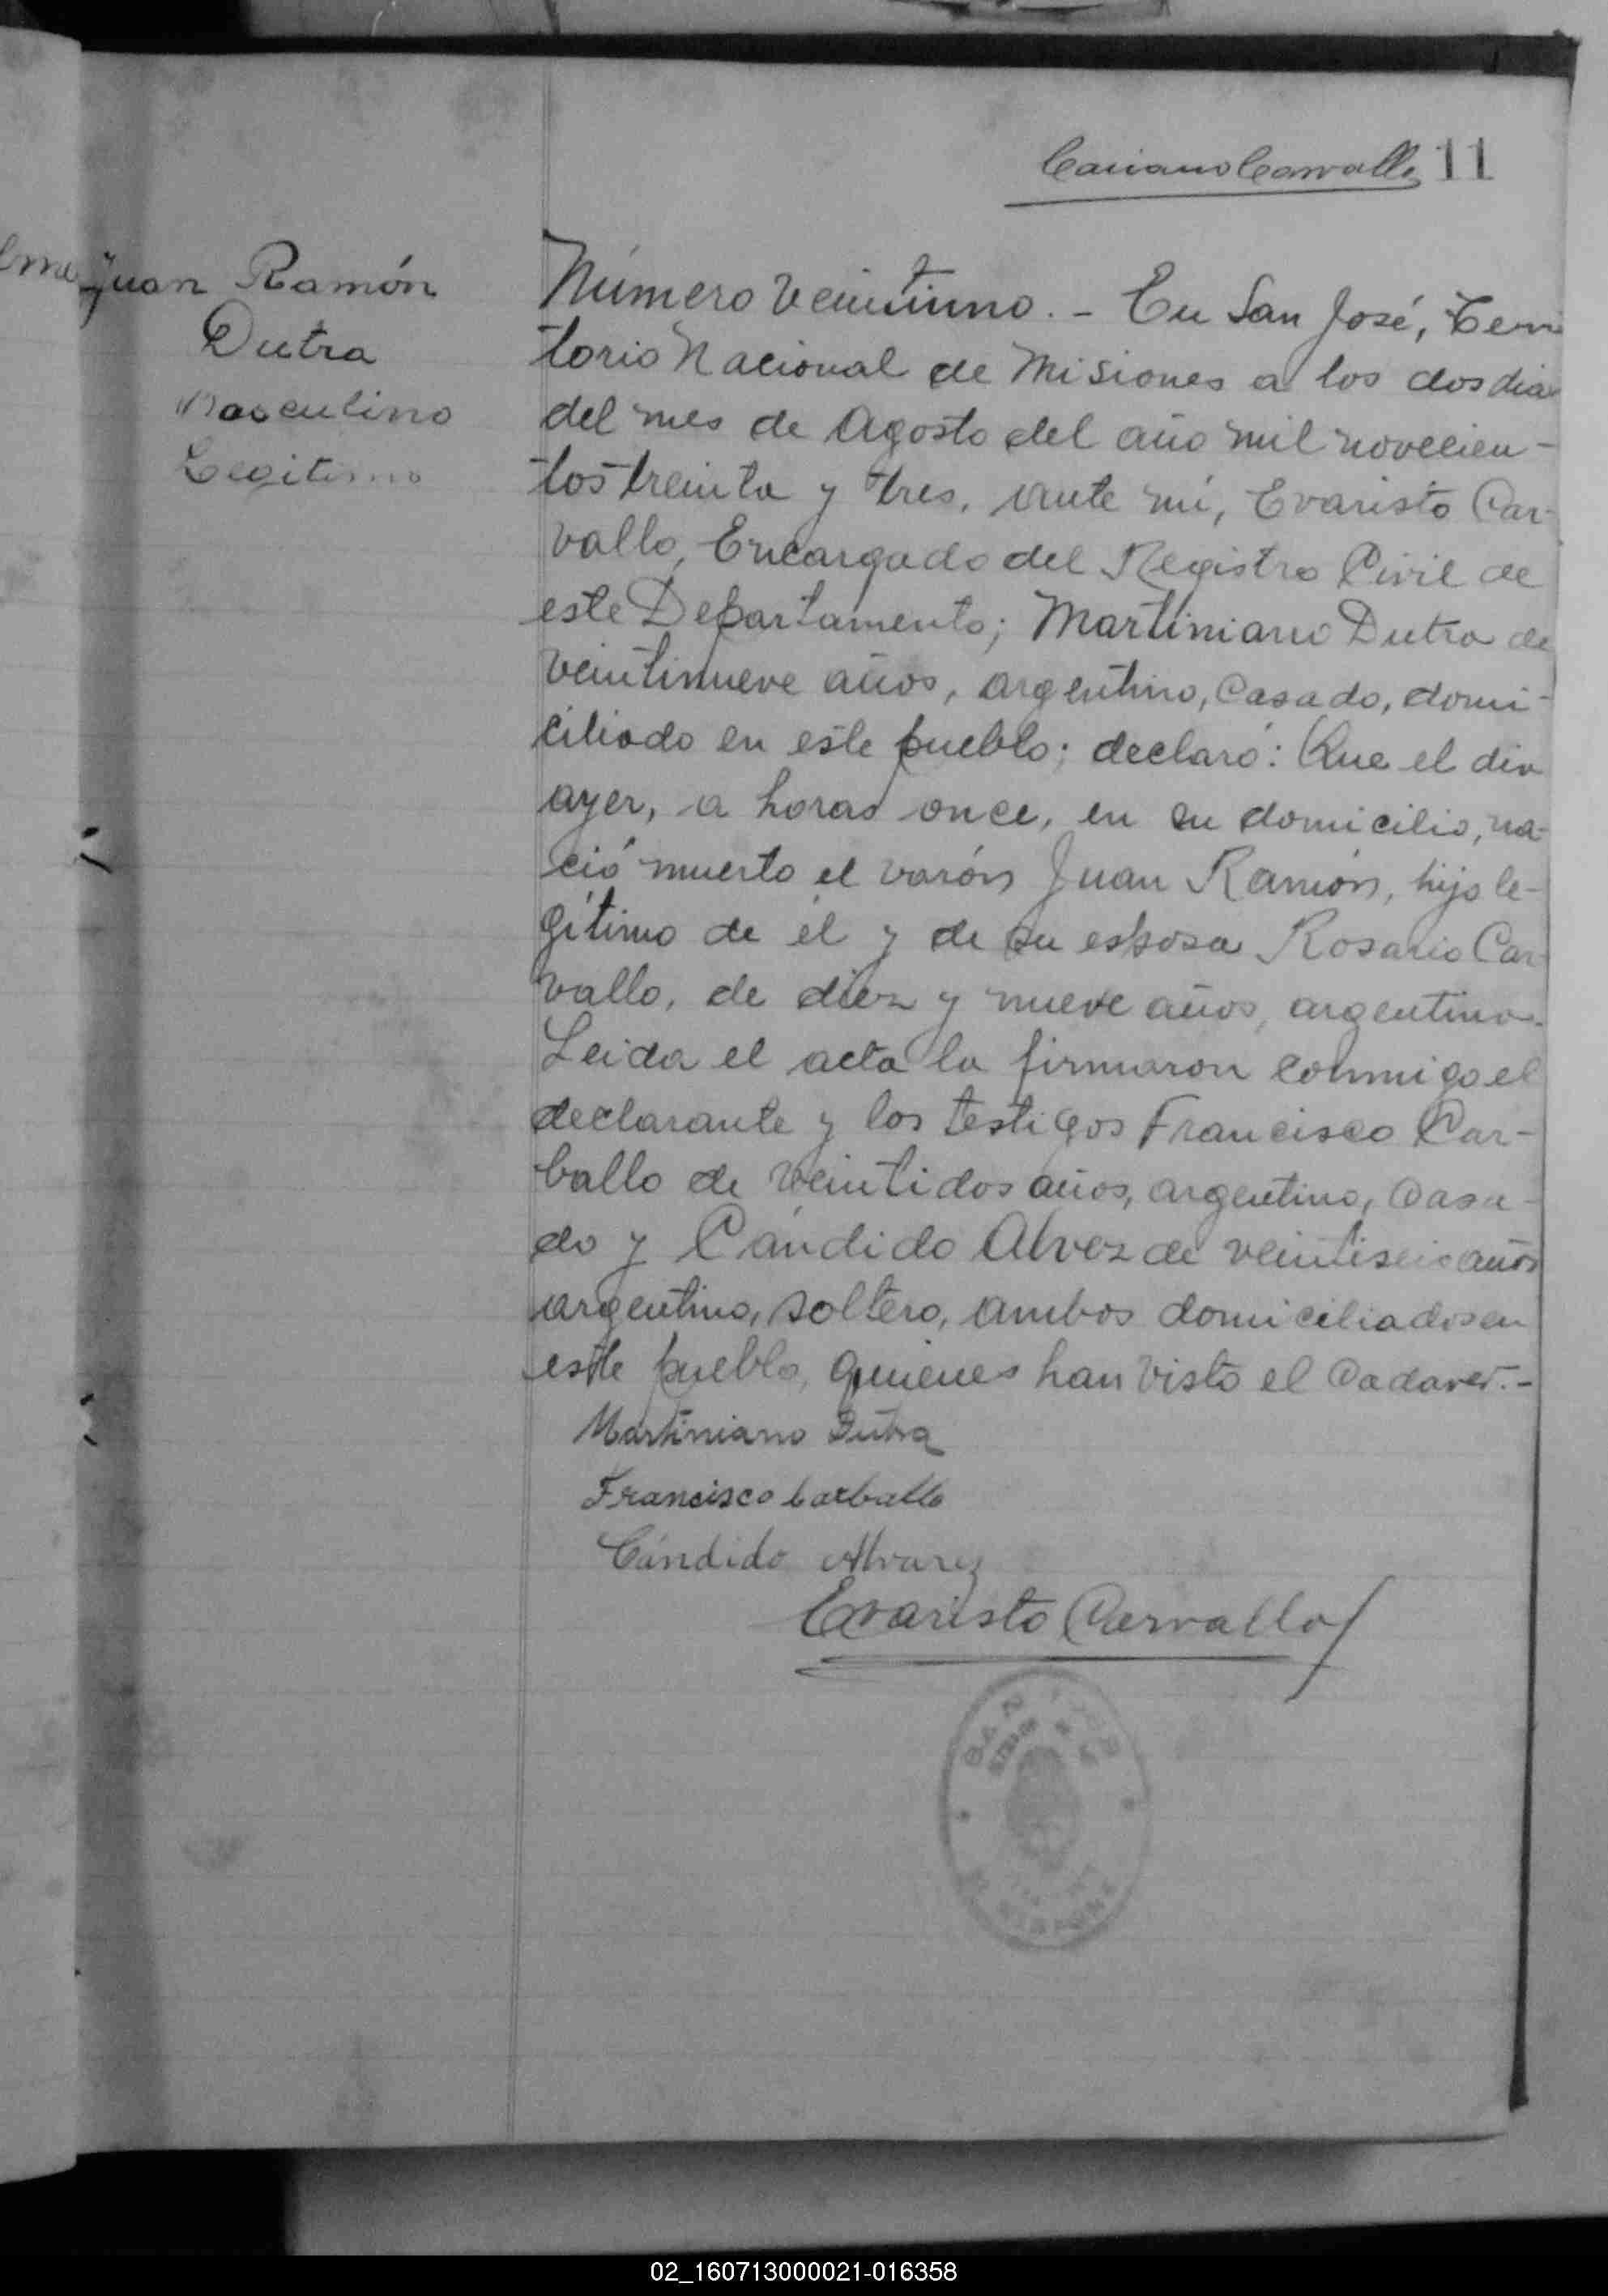 Carvallo 11
Juan Ramón
Dutra
Masculino
Legitimo
Número veintiuno. - En San José, Terri
torio Nacional de Misiones a los dos dia
del mes de Agosto del año mil novecien-
tos treinta y tres, ante mi, Evaristo Car-
vallo, Encargado del Registro Civil de
este Departamento; Martiniano Dutra de
veintinueve años, argentino, casado, domi-
ciliado en este pueblo; declaró: Que el dia
ayer, a horas once, en su domicilio, na-
ció muerto el varón Juan Ramón, hijo le-
gitimo de él y de su esposa Rosario Car-
vallo, de diez y nueve años, argentina.
Leida el acta la firmaron conmigo el
declarante y los testigos Francisco Car-
ballo de veintidos años, argentino, casa-
do y Cándido Alvez de veintiseis años
argentino, soltero, ambos domiciliados en
este pueblo, quienes han visto el cadaver.-
Martiniano Dutra
Francisco Carballo
Cándido Alvarez
Evaristo Carvallo
SAN JOSE
02_160713000021-016358